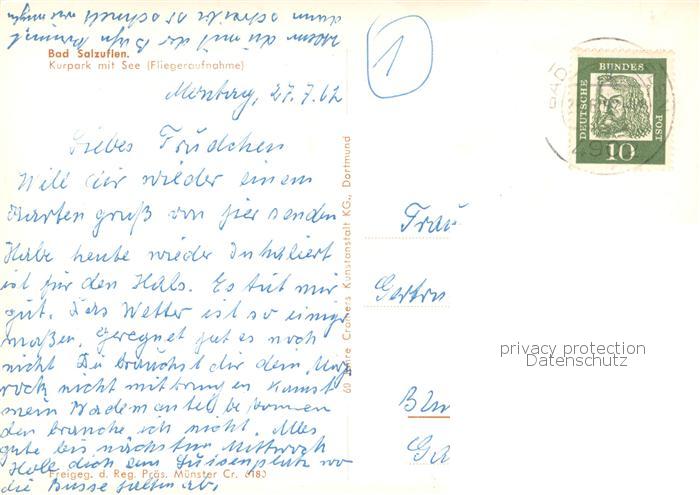 Wenn du mit der Bahn kommst
dann schreibe es schnell
Bad Salzuflen.
Kurpark mit See (Fliegeraufnahme)
27.7.62
Liebes Trudchen
Will dir wieder einen
Karten gruß von hier senden
Habe heute wieder Inhaliert
ist für den Hals. Es tut mir
gut. Das Wetter ist so einiger
maßen. Geregnet hat es noch
nicht Du brauchst dir dein
rock nicht mitbringen kannst
mein Bademantel bekommen
den brauche ich nicht. Alles
gute bis nächsten Mittwoch
Hole dich zum Luisenplatz wo
die Busse halten ab.
Freigeg. d. Reg. Präs. Münster Cr. 6180
60 Jahre Cramers Kunstanstalt KG., Dortmund
1
BAD
DEUTSCHE BUNDES POST
10
49
Frau
Gertru
Blu
Ga
privacy protection
Datenschutz